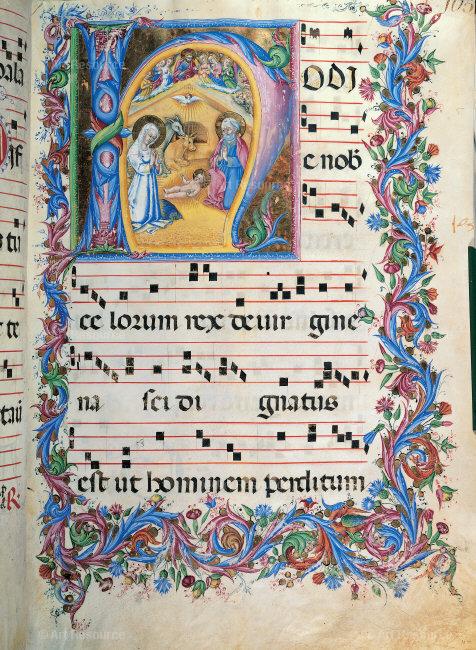 HODI
e nob
ce lorum rex de uir gine
na sci di gnatus
est ut hominem perditum
© Art Resource